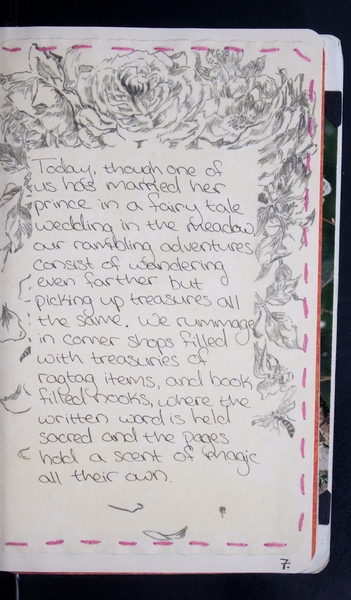 Today, though one of
us has married her
prince in a fairy tale
wedding in the meadow,
our rambling adventures
consist of wandering
even farther but
picking up treasures all
the same. We rummage
in corner shops filled
with treasuries of
ragtag items, and book
filled nooks, where the
written word is held
sacred and the pages
hold a scent of magic
all their own.
7.